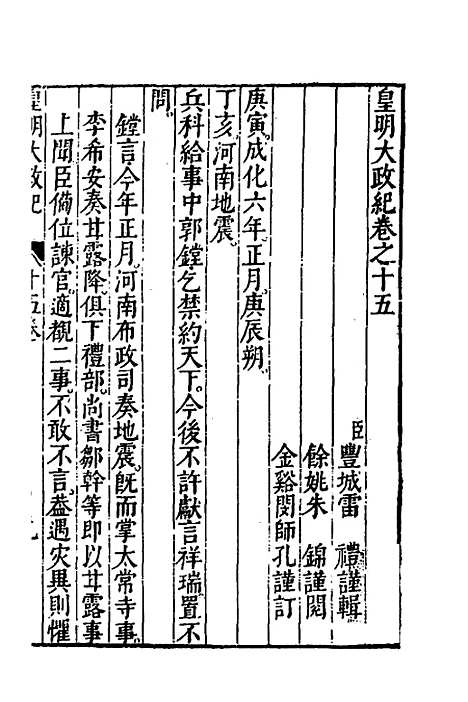 皇明大政紀卷之十五
臣豐城雷　禮謹輯
餘姚朱　錦謹閱
金谿閔師孔謹訂
庚寅。成化六年。正月。庚辰朔。
丁亥。河南地震。
兵科給事中郭鏜乞禁約天下。今後不許獻言祥瑞置不
問。
鏜言今年正月。河南布政司奏地震。旣而掌太常寺事。
李希安奏甘露降。俱下禮部。尚書鄒幹等即以甘露事
上聞臣備位諫官。適觀二事。不敢不言。葢遇灾異則懼
皇明大政紀　十五卷